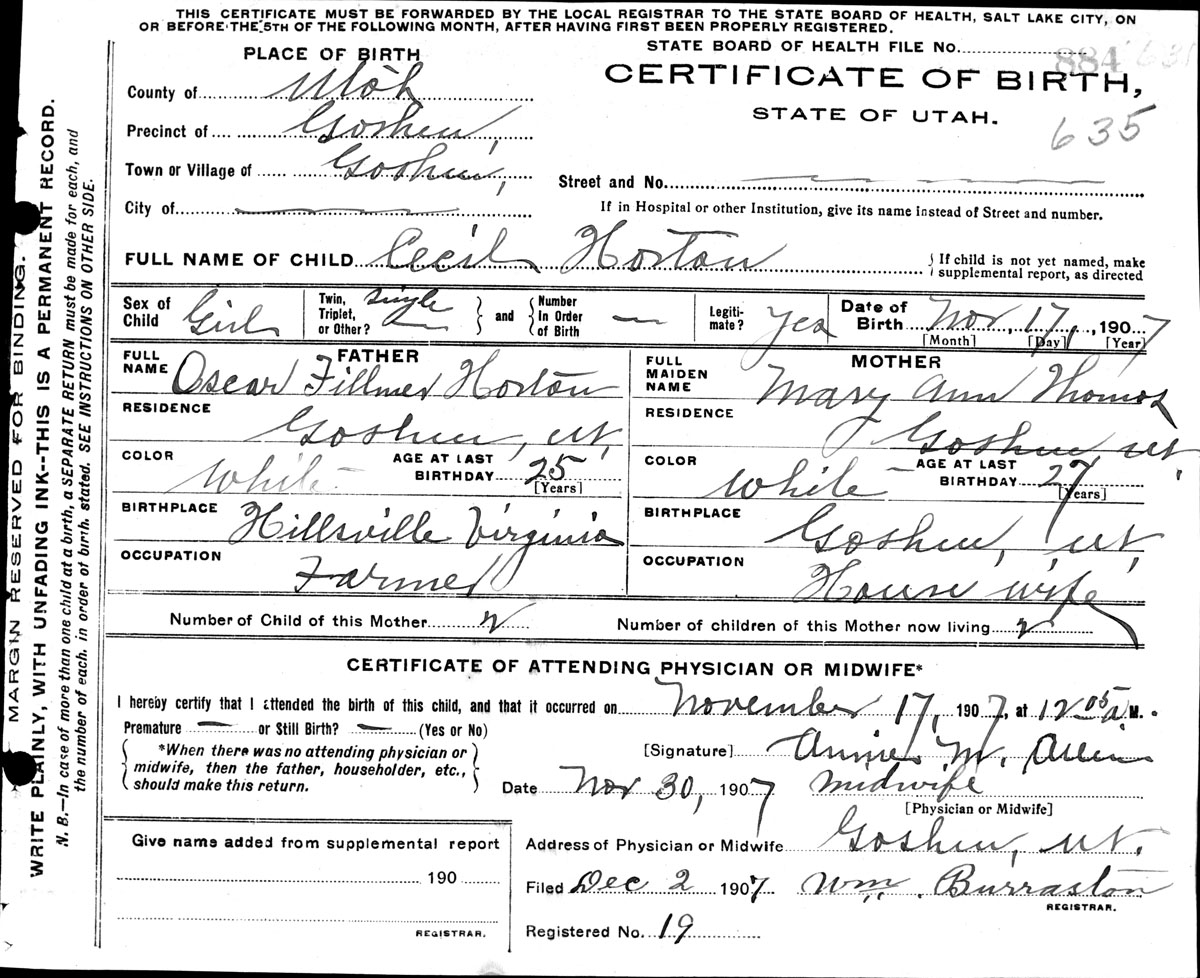 THIS CERTIFICATE MUST BE FORWARDED BY THE LOCAL REGISTRAR TO THE STATE BOARD OF HEALTH, SALT LAKE CITY, ON
OR BEFORE THE 5TH OF THE FOLLOWING MONTH, AFTER HAVING FIRST BEEN PROPERLY REGISTERED.
MARGIN RESERVED FOR BINDING.
WRITE PLAINLY, WITH UNFADING INK--THIS IS A PERMANENT RECORD.
N. B.—In case of more than one child at a birth, a SEPARATE RETURN must be made for each, and
the number of each, in order of birth, stated. SEE INSTRUCTIONS ON OTHER SIDE.
PLACE OF BIRTH
County of Utah
Precinct of Goshen,
Town or Village of Goshen,
City of
STATE BOARD OF HEALTH FILE No. 884
CERTIFICATE OF BIRTH,
STATE OF UTAH.
635
Street and No.
If in Hospital or other Institution, give its name instead of Street and number.
FULL NAME OF CHILD Cecil Horton
{ If child is not yet named, make
supplemental report, as directed
Sex of Child Girl
Twin, Triplet, or Other? single
and
Number In Order of Birth —
Legiti- mate? Yes
Date of Birth Nov, 17, 1907
[Month] [Day] [Year]
FATHER
FULL NAME Oscar Fillmer Horton
RESIDENCE Goshen, Ut,
COLOR White
AGE AT LAST BIRTHDAY 25
[Years]
BIRTHPLACE Hillsville Virginia
OCCUPATION Farmer
MOTHER
FULL MAIDEN NAME Mary Ann Thomas
RESIDENCE Goshen, Ut.
COLOR White
AGE AT LAST BIRTHDAY 27
[Years]
BIRTHPLACE Goshen, Ut,
OCCUPATION House wife
Number of Child of this Mother 2
Number of children of this Mother now living 2
CERTIFICATE OF ATTENDING PHYSICIAN OR MIDWIFE*
I hereby certify that I attended the birth of this child, and that it occurred on November 17, 1907, at 12 05 A.M.
Premature — or Still Birth? — (Yes or No)
*When there was no attending physician or
midwife, then the father, householder, etc.,
should make this return.
[Signature] Annie M. Allen
Date Nov 30, 1907 midwife
[Physician or Midwife]
Give name added from supplemental report
190
REGISTRAR.
Address of Physician or Midwife Goshen, Ut.
Filed Dec 2 1907 Wm. Burraston
REGISTRAR.
Registered No. 19